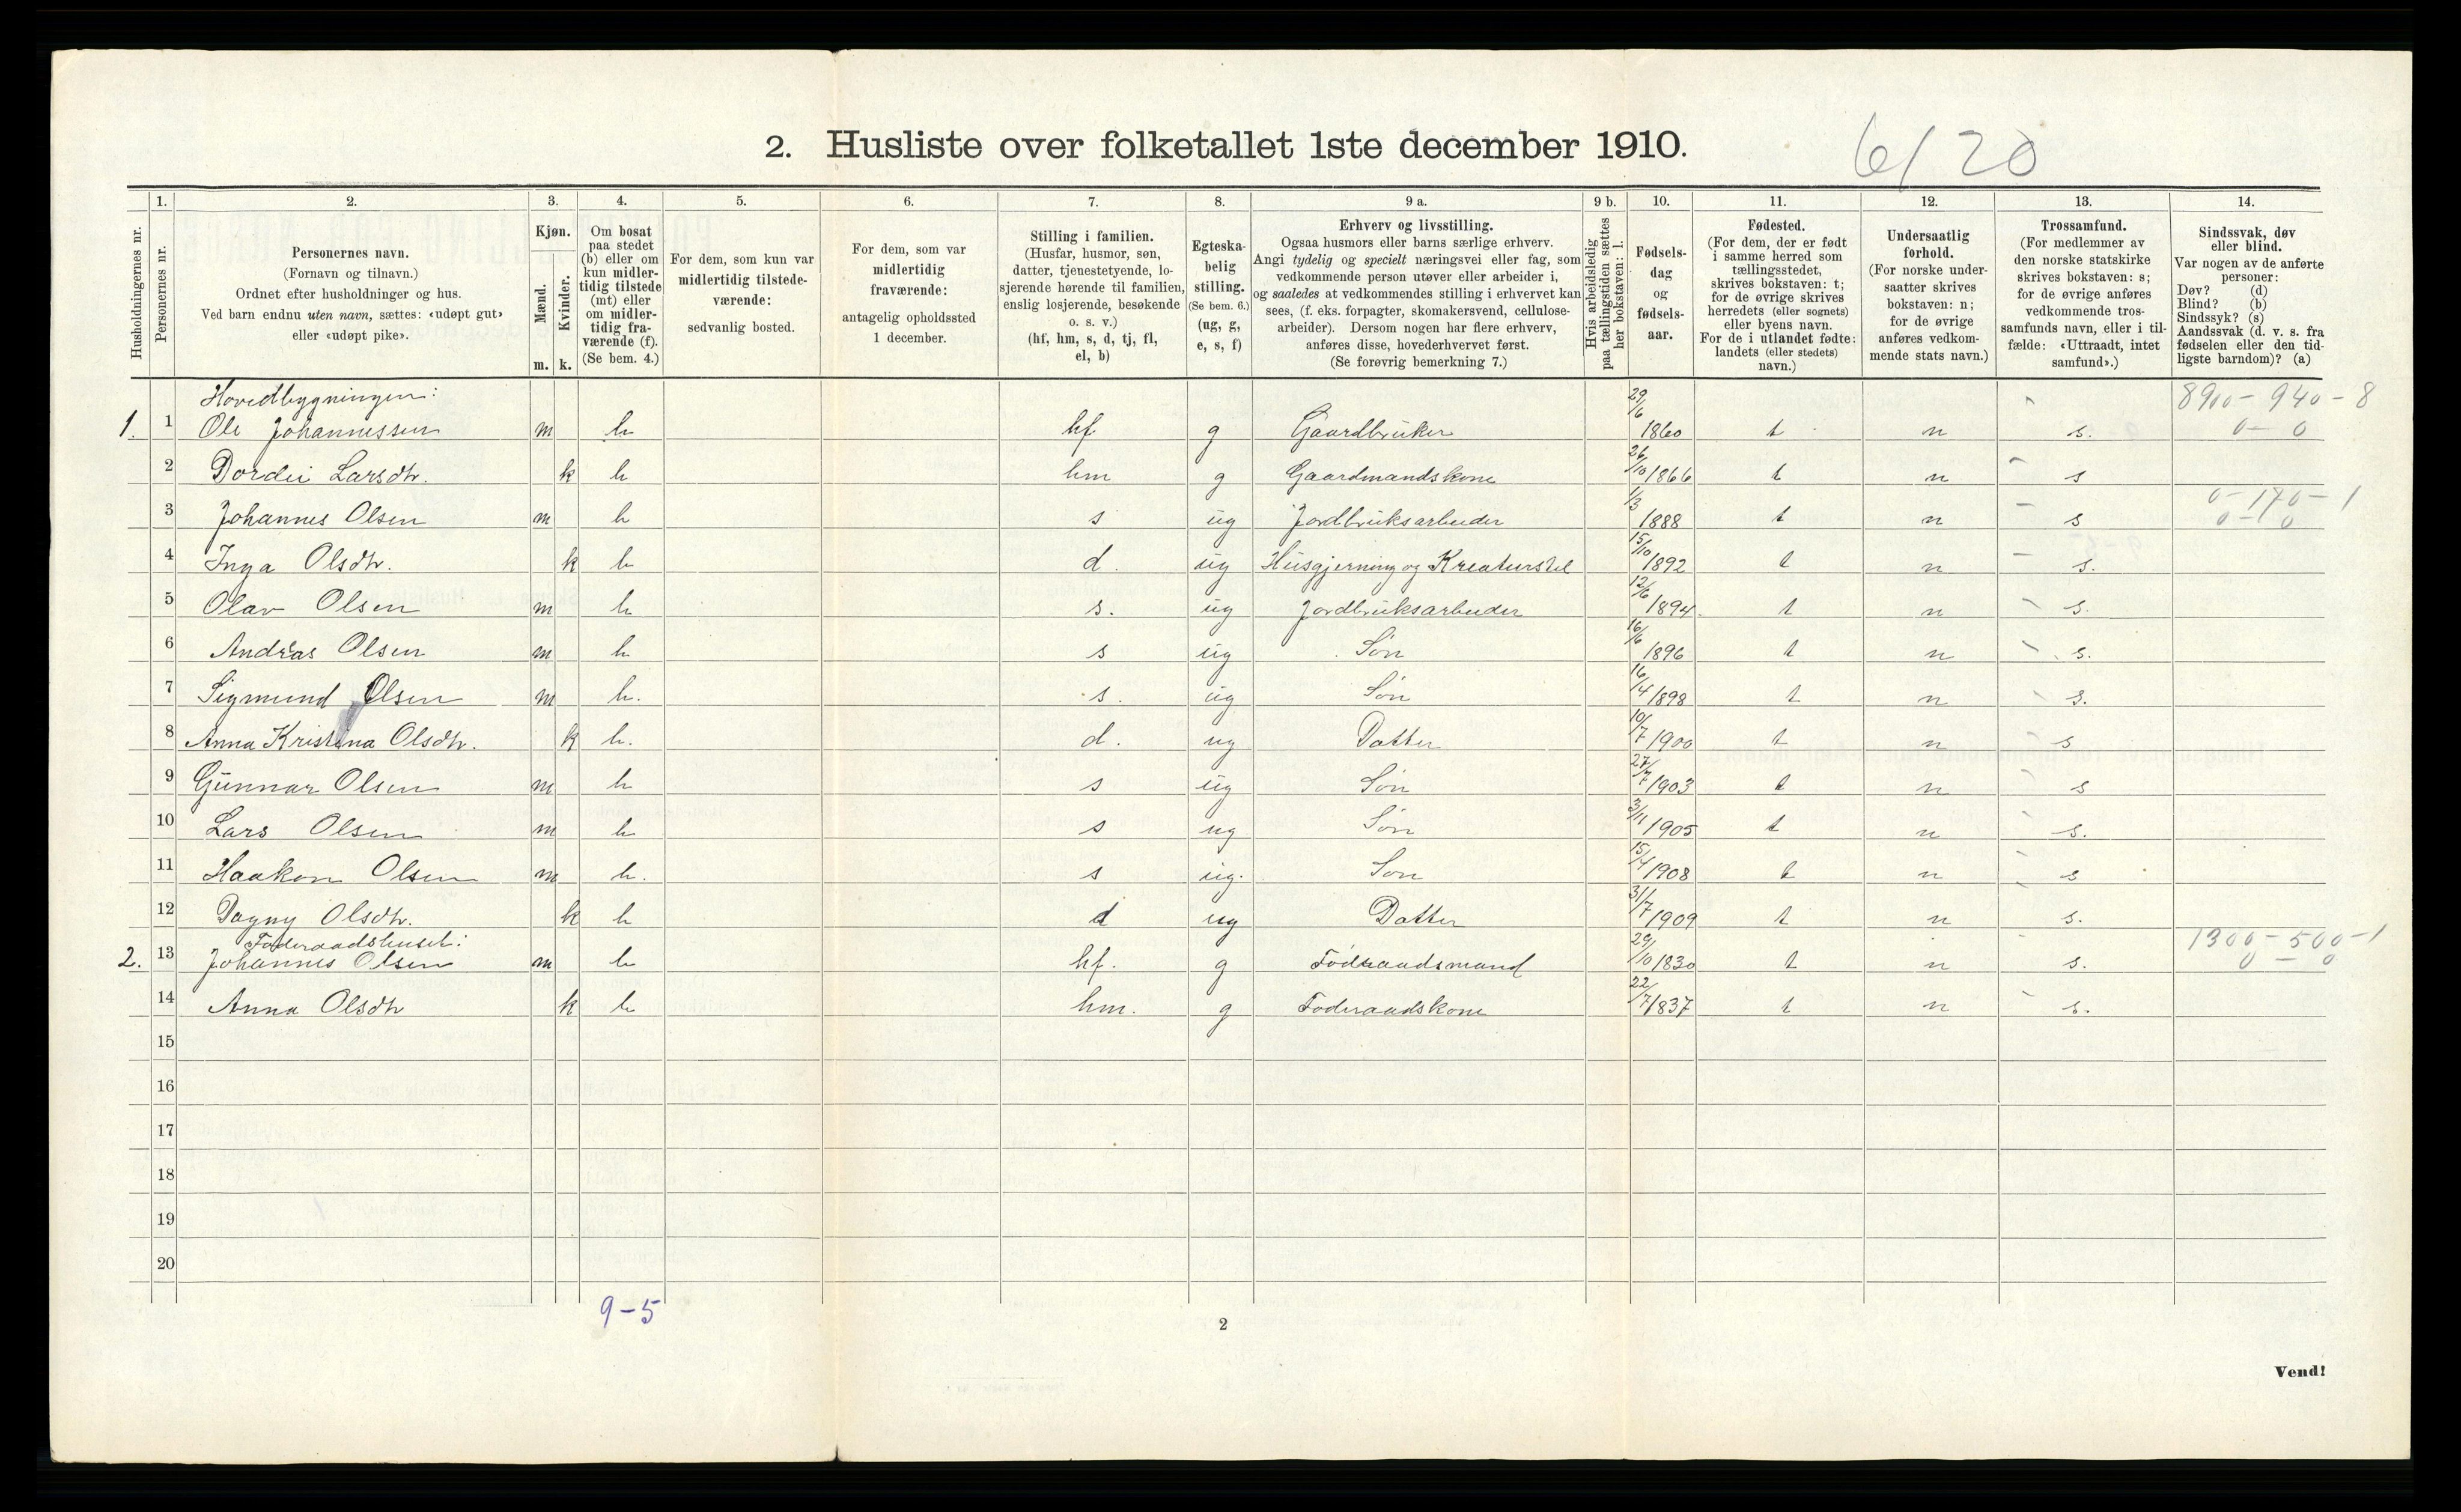 2. Husliste over folketallet 1ste december 1910.
6/20
1. 2. 3. 4. 5. 6. 7. 8. 9 a. 9 b. 10. 11. 12. 13. 14.
Husholdningernes nr.
Personernes nr.
Personernes navn.
(Fornavn og tilnavn.)
Ordnet efter husholdninger og hus.
Ved barn endnu uten navn, sættes: «udøpt gut»
eller «udøpt pike».
Kjøn.
Mænd.
Kvinder.
m. k.
Om bosat
paa stedet
(b) eller om
kun midler-
tidig tilstede
(mt) eller
om midler-
tidig fra-
værende (f).
(Se bem. 4.)
For dem, som kun var
midlertidig tilstede-
værende:
sedvanlig bosted.
For dem, som var
midlertidig
fraværende:
antagelig opholdssted
1 december.
Stilling i familien.
(Husfar, husmor, søn,
datter, tjenestetyende, lo-
sjerende hørende til familien,
enslig losjerende, besøkende
o. s. v.)
(hf, hm, s, d, tj, fl,
el, b)
Egteska-
belig
stilling.
(Se bem. 6.)
(ug, g,
e, s, f)
Erhverv og livsstilling.
Ogsaa husmors eller barns særlige erhverv.
Angi tydelig og specielt næringsvei eller fag, som
vedkommende person utøver eller arbeider i,
og saaledes at vedkommendes stilling i erhvervet kan
sees, (f. eks. forpagter, skomakersvend, cellulose-
arbeider). Dersom nogen har flere erhverv,
anføres disse, hovederhvervet først.
(Se forøvrig bemerkning 7.)
Hvis arbeidsledig
paa tællingstiden sættes
her bokstaven: l.
Fødsels-
dag
og
fødsels-
aar.
Fødested.
(For dem, der er født
i samme herred som
tællingsstedet,
skrives bokstaven: t;
for de øvrige skrives
herredets (eller sognets)
eller byens navn.
For de i utlandet fødte:
landets (eller stedets)
navn.)
Undersaatlig
forhold.
(For norske under-
saatter skrives
bokstaven: n;
for de øvrige
anføres vedkom-
mende stats navn.)
Trossamfund.
(For medlemmer av
den norske statskirke
skrives bokstaven: s;
for de øvrige anføres
vedkommende tros-
samfunds navn, eller i til-
fælde: «Uttraadt, intet
samfund».)
Sindssvak, døv
eller blind.
Var nogen av de anførte
personer:
Døv? (d)
Blind? (b)
Sindssyk? (s)
Aandssvak (d. v. s. fra
fødselen eller den tid-
ligste barndom)? (a)
Hovedbygningen: 8900 - 940 - 8
1. 1 Ole Johannessen m b hf g Gaardbruker 29/6 1860 t n s. 0 - 0
2 Dordei Larsdtr. k b hm g Gaardmandskone 26/10 1866 t n s
3 Johannes Olsen m b s ug Jordbruksarbeider 1/3 1888 t n s 0 - 170 - 1
0 - 0
4 Inga Olsdtr. k b d. ug Husgjerning og Kreaturstel 15/10 1892 t n s.
5 Olav Olsen m b s. ug Jordbruksarbeider 12/6 1894. t n s.
6 Andras Olsen m b s ug Søn 16/6 1896 t n s.
7 Sigmund Olsen m b. s. ug Søn 16/4 1898 t n s.
8 Anna Kristina Olsdtr. k b. d. ug Datter 10/7 1900 t n s
9 Gunnar Olsen m b s ug Søn 27/7 1903 t n s
10 Lars Olsen m b s ug Søn 3/11 1905 t n s.
11 Haakon Olsen m b. s ug. Søn 15/4 1908 t n s
12 Dagny Olsdtr. k b d ug Datter 31/7 1909 t n s.
Føderaadshuset: 1300 - 500 - 1
2. 13 Johannes Olsen m b hf. g Føderaadsmand 29/10 1830 t n s. 0 - 0
14 Anna Olsdtr k b hm. g Føderaadskone 22/7 1837 t n s.
15
16
17
18
19
20
9-5
2
Vend!